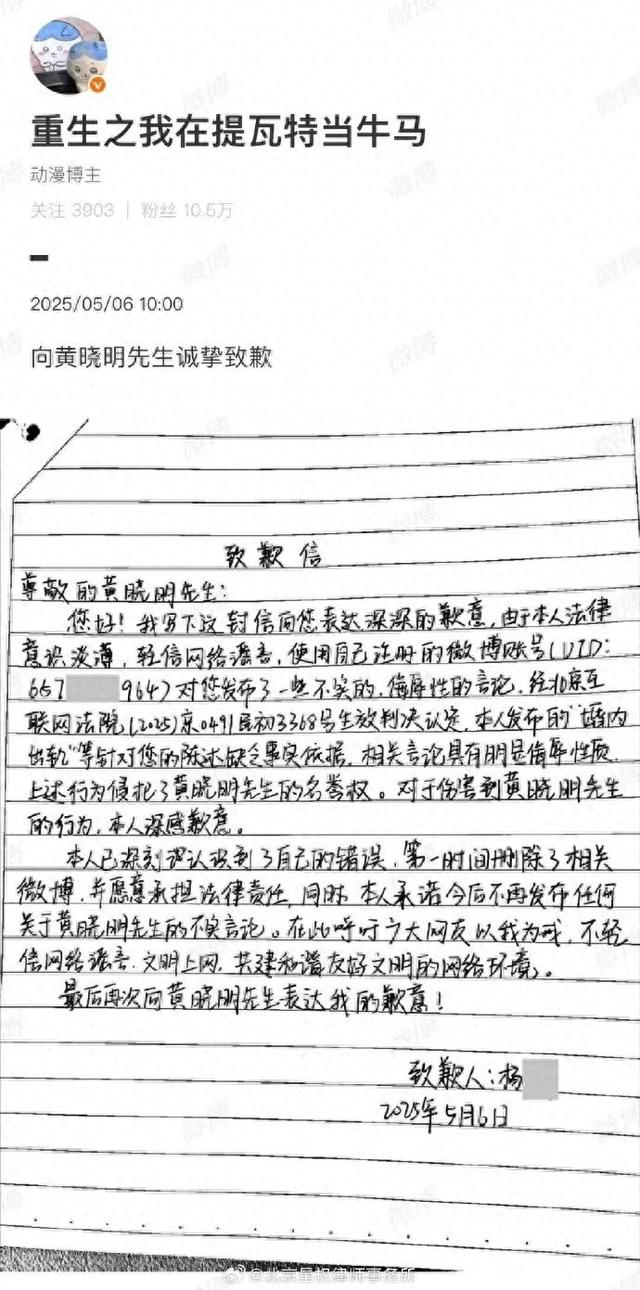 重生之我在提瓦特当牛马
动漫博主
关注 3903 | 粉丝 10.5万
2025/05/06 10:00
向黄晓明先生诚挚致歉
致歉信
尊敬的黄晓明先生：
您好！我写下这封信向您表达深深的歉意，由于本人法律
意识淡薄，轻信网络谣言，使用自己注册的微博账号（UID：
657 964）对您发布了一些不实的、侮辱性的言论，经北京互
联网法院（2025）京0491民初3368号生效判决认定，本人发布的“婚内
出轨”等针对您的陈述缺乏事实依据，相关言论具有明显侮辱性质，
上述行为侵犯了黄晓明先生的名誉权。对于伤害到黄晓明先生
的行为，本人深感歉意。
本人已深刻认识到了自己的错误，第一时间删除了相关
微博，并愿意承担法律责任，同时，本人承诺今后不再发布任何
关于黄晓明先生的不实言论。在此呼吁广大网友以我为戒，不轻
信网络谣言，文明上网，共建和谐友好文明的网络环境。
最后再次向黄晓明先生表达我的歉意！
致歉人：杨
2025年5月6日
@北京星权律师事务所
微博